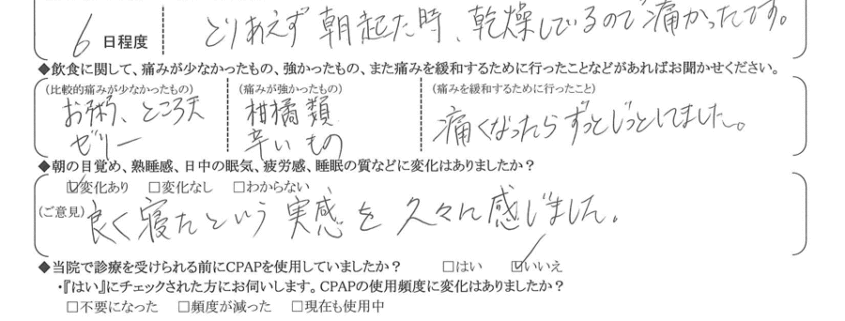 6 日程度
とりあえず 朝起きた時、乾燥しているので痛かったです。
◆飲食に関して、痛みが少なかったもの、強かったもの、また痛みを緩和するために行ったことなどがあればお聞かせください。
(比較的痛みが少なかったもの)
お粥、ところ天
ゼリー
(痛みが強かったもの)
柑橘類
辛いもの
(痛みを緩和するために行ったこと)
痛くなったらずっとじっとしてました。
◆朝の目覚め、熟睡感、日中の眠気、疲労感、睡眠の質などに変化はありましたか？
☑変化あり □変化なし □わからない
(ご意見) 良く寝たという実感を久々に感じました。
◆当院で診療を受けられる前にCPAPを使用していましたか？ □はい ☑いいえ
・『はい』にチェックされた方にお伺いします。CPAPの使用頻度に変化はありましたか？
□不要になった □頻度が減った □現在も使用中